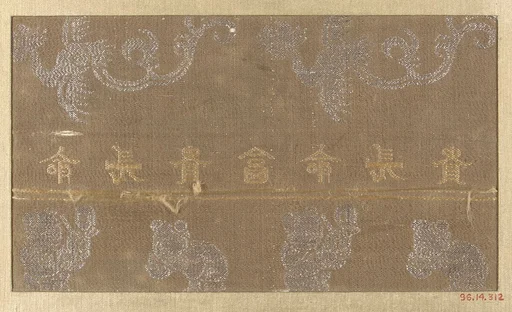 貴長命富貴長命
96.14.312